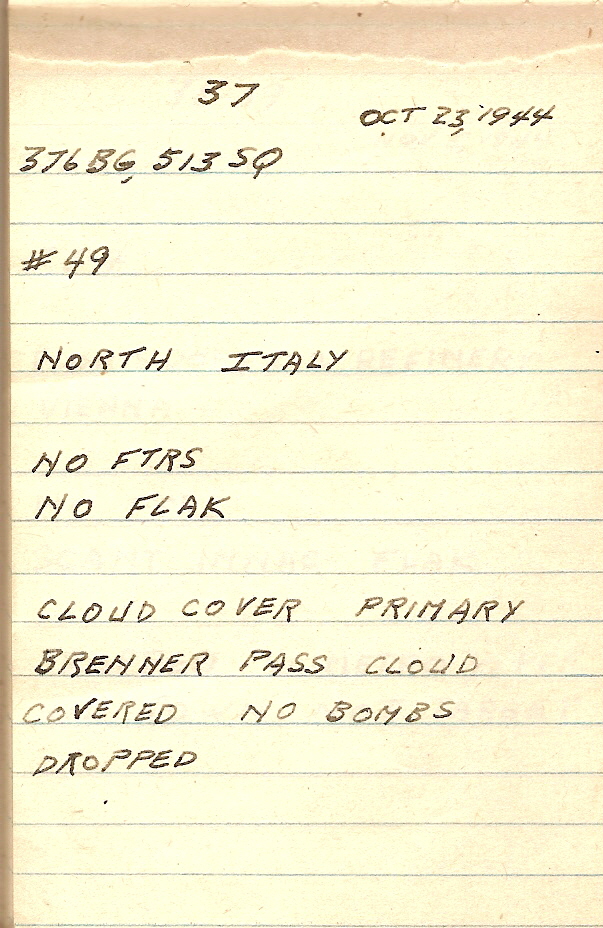 37
OCT 23, 1944
376 BG, 513 SQ
#49
NORTH ITALY
NO FTRS
NO FLAK
CLOUD COVER PRIMARY
BRENNER PASS CLOUD
COVERED NO BOMBS
DROPPED